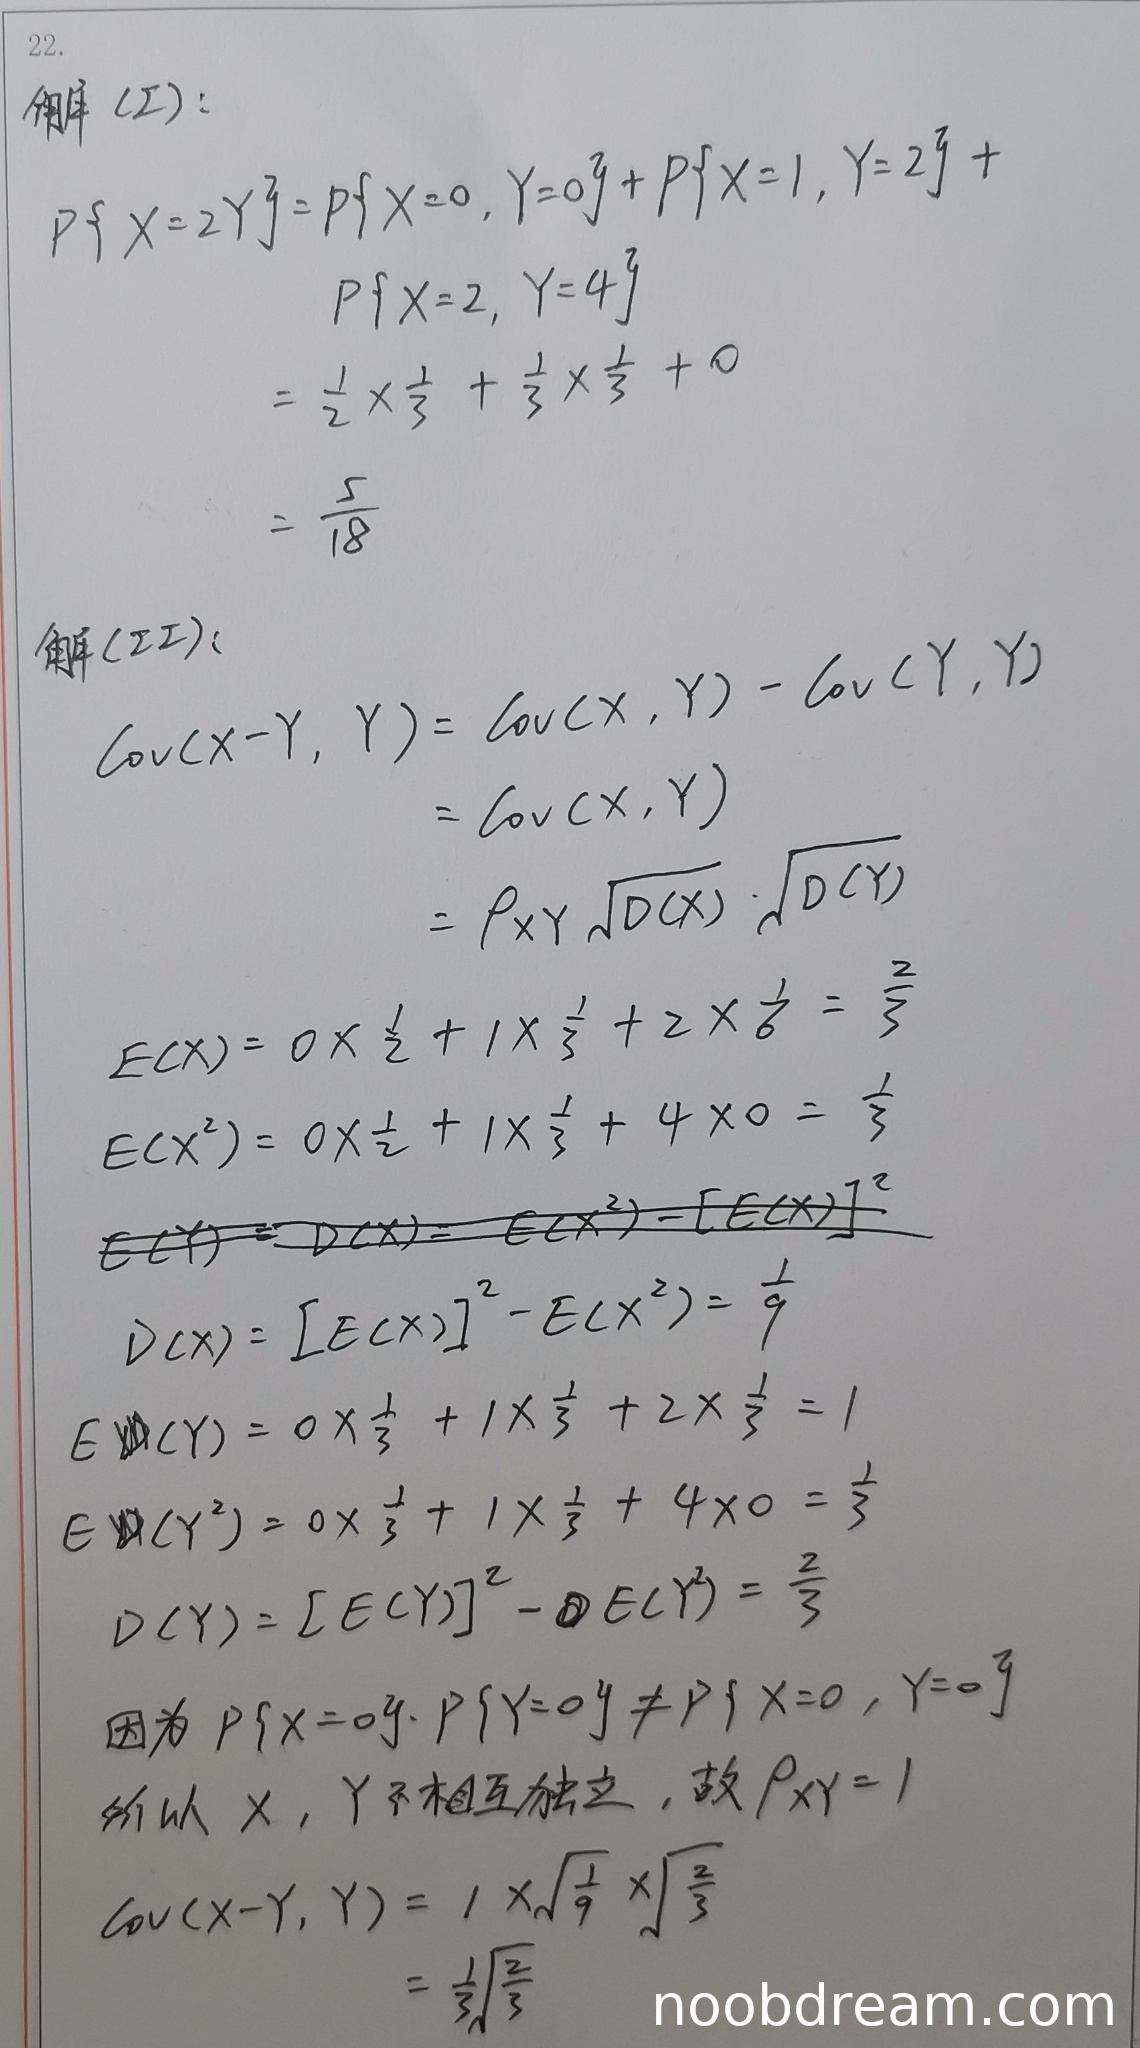 22.
解(I):
P{X=2Y}=P{X=0,Y=0}+P{X=1,Y=2}+
P{X=2,Y=4}
= 1/2 × 1/3 + 1/3 × 1/3 + 0
= 5/18
解(II):
Cov(X-Y, Y) = Cov(X,Y) - Cov(Y,Y)
= Cov(X,Y)
= ρXY √D(X) · √D(Y)
E(X) = 0×1/2 + 1×1/3 + 2×1/6 = 2/3
E(X²) = 0×1/2 + 1×1/3 + 4×0 = 1/3
E(Y) = D(X) = E(X²) - [E(X)]²
D(X) = [E(X)]² - E(X²) = 1/9
E(Y) = 0×1/3 + 1×1/3 + 2×1/3 = 1
E(Y²) = 0×1/3 + 1×1/3 + 4×0 = 1/3
D(Y) = [E(Y)]² - E(Y²) = 2/3
因为 P{X=0}·P{Y=0} ≠ P{X=0,Y=0}
所以 X, Y不相互独立,故ρXY=1
Cov(X-Y, Y) = 1×√(1/9) ×√(2/3)
= 1/3√(2/3)
noobdream.com